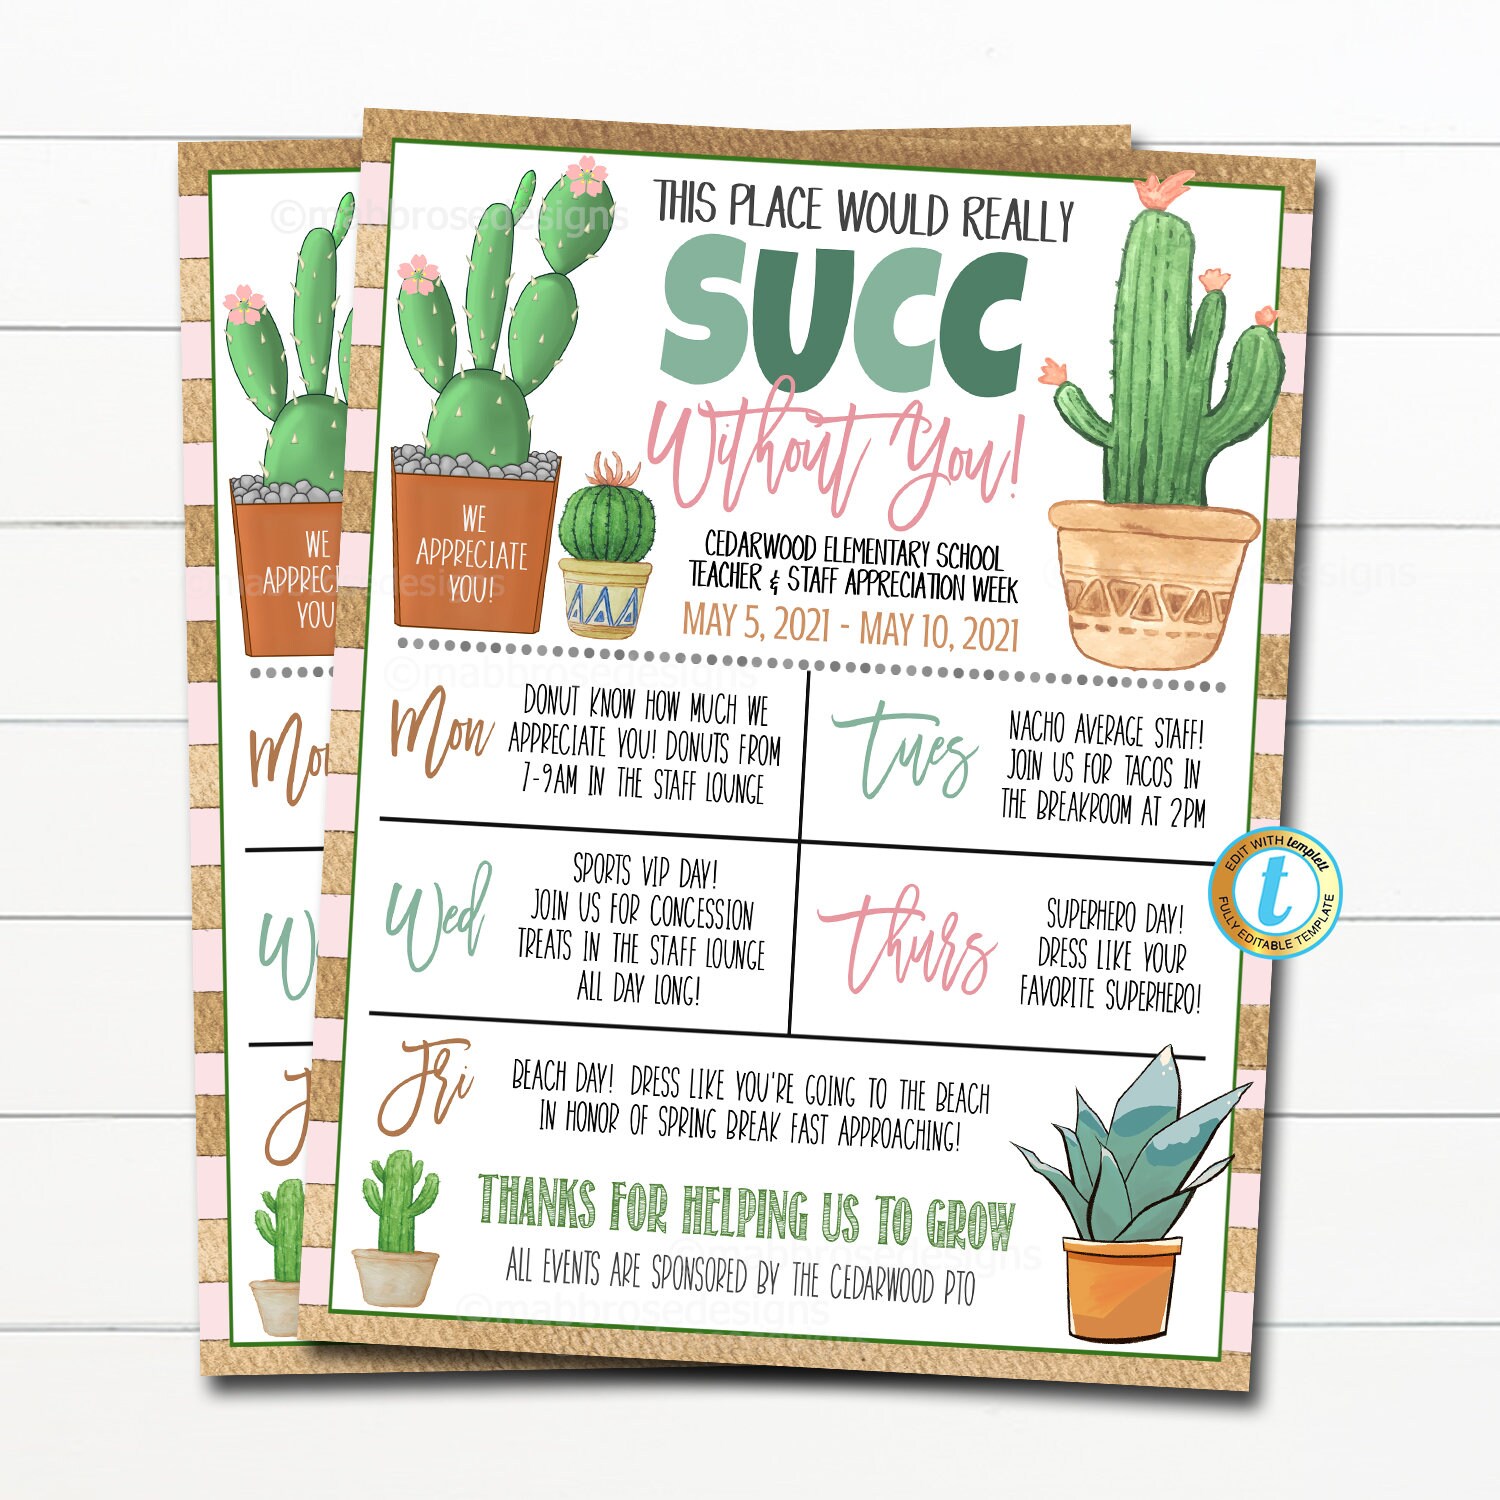 THIS PLACE WOULD REALLY
SUCC
Without You!
WE
APPRECIATE
YOU!
CEDARWOOD ELEMENTARY SCHOOL
TEACHER & STAFF APPRECIATION WEEK
MAY 5, 2021 - MAY 10, 2021
Mon
DONUT KNOW HOW MUCH WE
APPRECIATE YOU! DONUTS FROM
7-9AM IN THE STAFF LOUNGE
Tues
NACHO AVERAGE STAFF!
JOIN US FOR TACOS IN
THE BREAKROOM AT 2PM
Wed
SPORTS VIP DAY!
JOIN US FOR CONCESSION
TREATS IN THE STAFF LOUNGE
ALL DAY LONG!
Thurs
SUPERHERO DAY!
DRESS LIKE YOUR
FAVORITE SUPERHERO!
Fri
BEACH DAY! DRESS LIKE YOU'RE GOING TO THE BEACH
IN HONOR OF SPRING BREAK FAST APPROACHING!
THANKS FOR HELPING US TO GROW
ALL EVENTS ARE SPONSORED BY THE CEDARWOOD PTO
EDIT WITH templett
t
FULLY EDITABLE TEMPLATE
©mabbrosedesigns
©mabbrosedesigns
©mabbrosedesigns
©mabbrosedesigns
WE
YOU